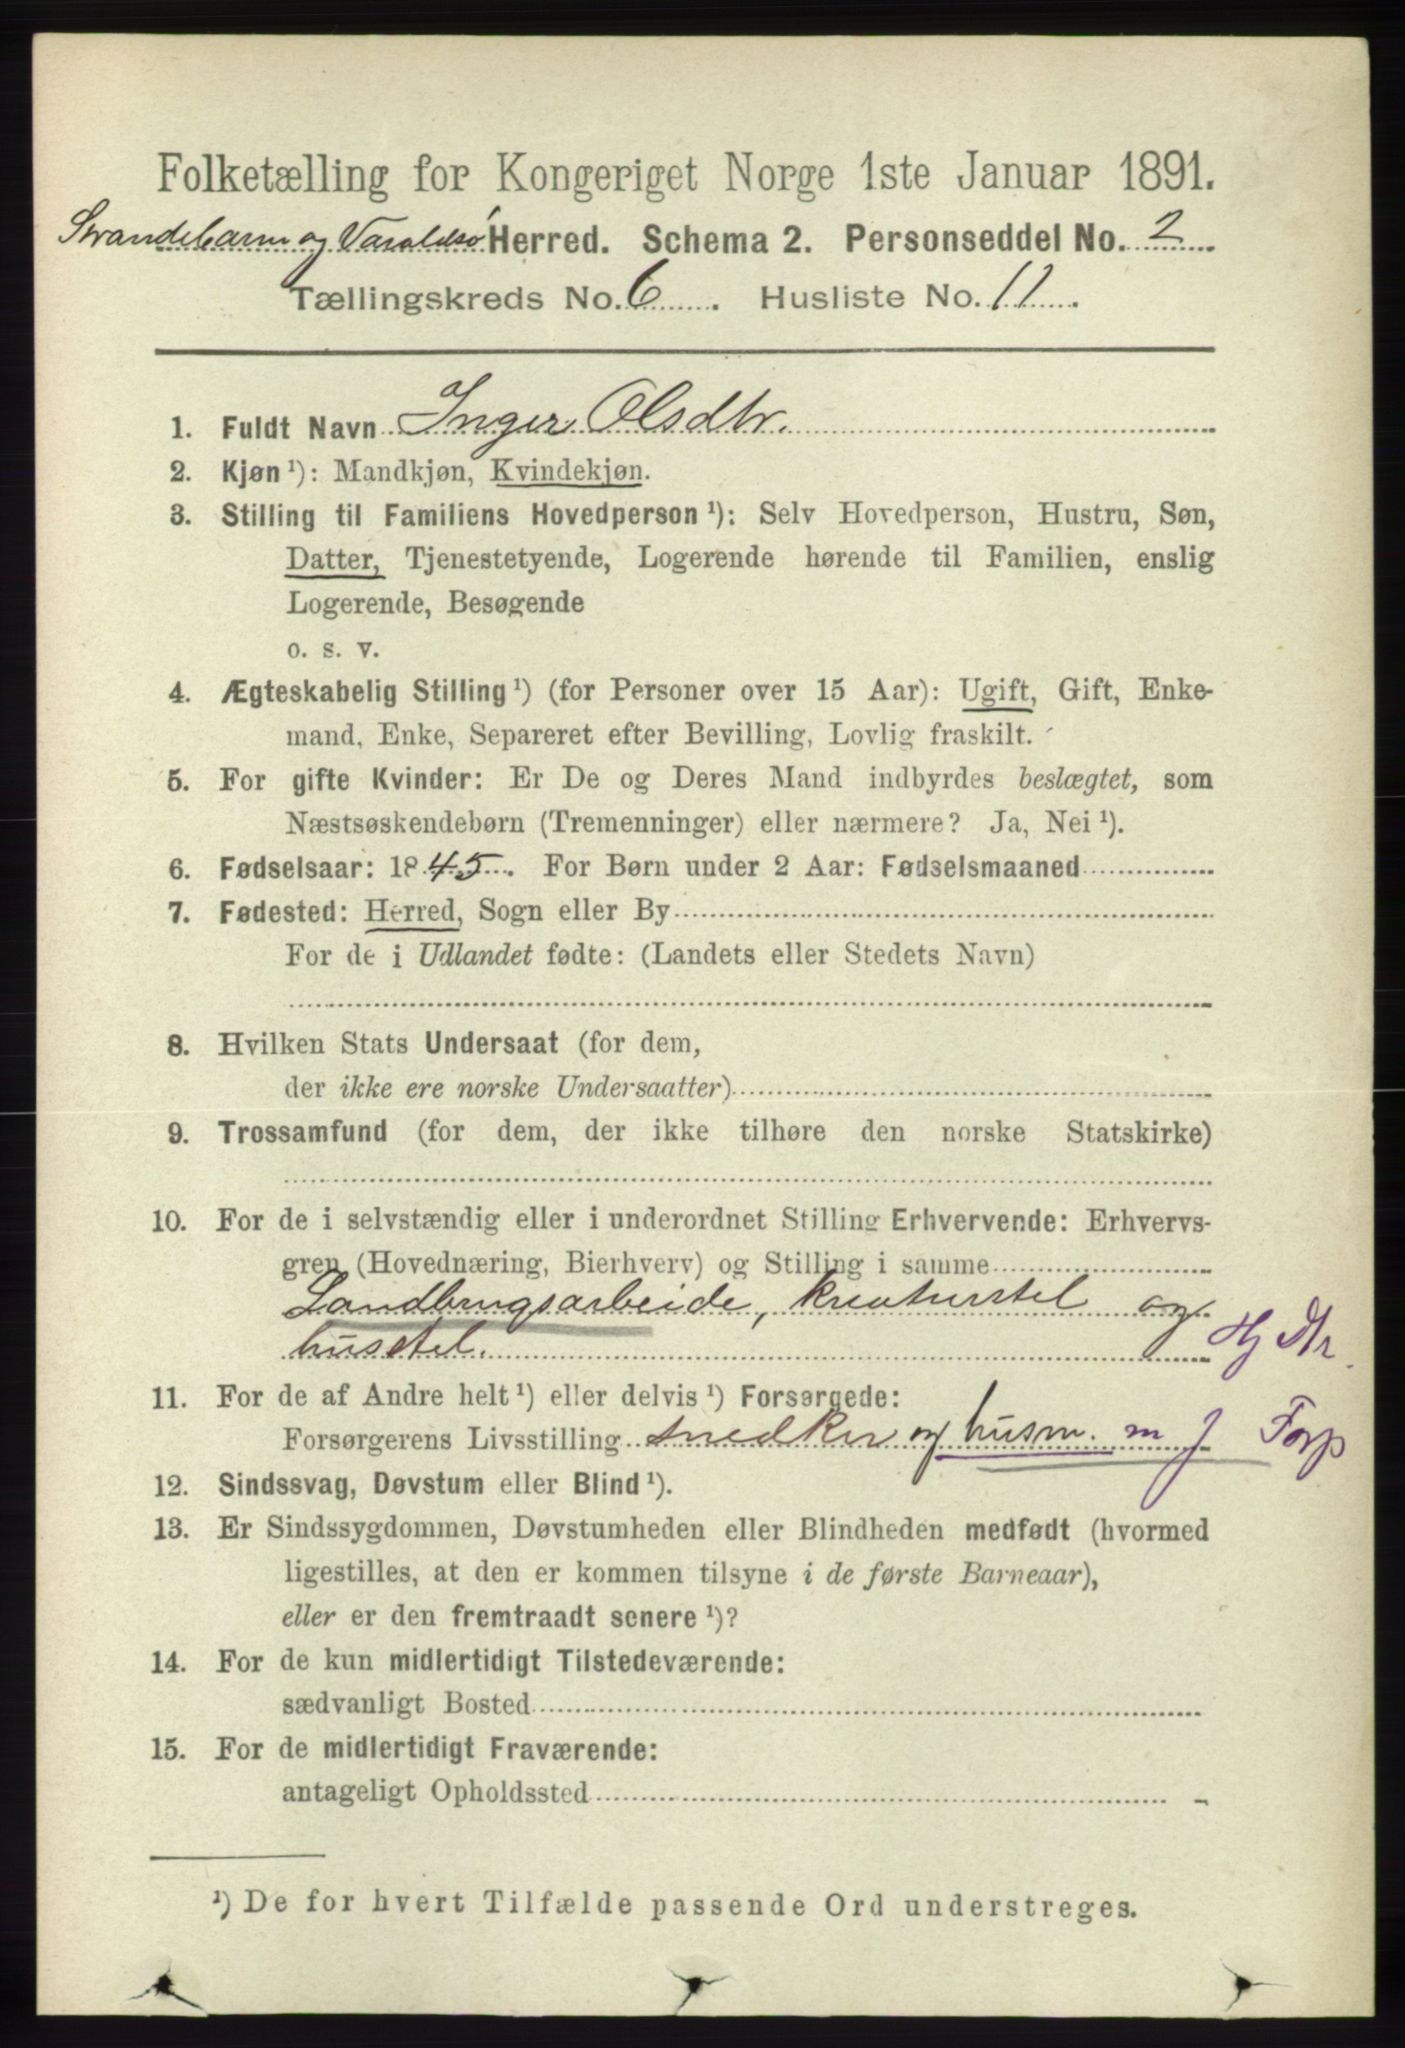 Folketælling for Kongeriget Norge 1ste Januar 1891.
Strandebarm og Varaldsø Herred. Schema 2. Personseddel No. 2
Tællingskreds No. 6. Husliste No. 11.
1. Fuldt Navn Inger Olsdtr.
2. Kjøn ¹): Mandkjøn, Kvindekjøn.
3. Stilling til Familiens Hovedperson ¹): Selv Hovedperson, Hustru, Søn,
Datter, Tjenestetyende, Logerende hørende til Familien, enslig
Logerende, Besøgende
o. s. v.
4. Ægteskabelig Stilling ¹) (for Personer over 15 Aar): Ugift, Gift, Enke-
mand, Enke, Separeret efter Bevilling, Lovlig fraskilt.
5. For gifte Kvinder: Er De og Deres Mand indbyrdes beslægtet, som
Næstsøskendebørn (Tremenninger) eller nærmere? Ja, Nei ¹).
6. Fødselsaar: 1845. For Børn under 2 Aar: Fødselsmaaned
7. Fødested: Herred, Sogn eller By
For de i Udlandet fødte: (Landets eller Stedets Navn)
8. Hvilken Stats Undersaat (for dem,
der ikke ere norske Undersaatter)
9. Trossamfund (for dem, der ikke tilhøre den norske Statskirke)
10. For de i selvstændig eller i underordnet Stilling Erhvervende: Erhvervs-
gren (Hovednæring, Bierhverv) og Stilling i samme
Landbrugsarbeide, kreaturstel og
husstel. Hj Dtr.
11. For de af Andre helt ¹) eller delvis ¹) Forsørgede:
Forsørgerens Livsstilling snedker og husm. m J Forp
12. Sindssvag, Døvstum eller Blind ¹).
13. Er Sindssygdommen, Døvstumheden eller Blindheden medfødt (hvormed
ligestilles, at den er kommen tilsyne i de første Barneaar),
eller er den fremtraadt senere ¹)?
14. For de kun midlertidigt Tilstedeværende:
sædvanligt Bosted
15. For de midlertidigt Fraværende:
antageligt Opholdssted
¹) De for hvert Tilfælde passende Ord understreges.